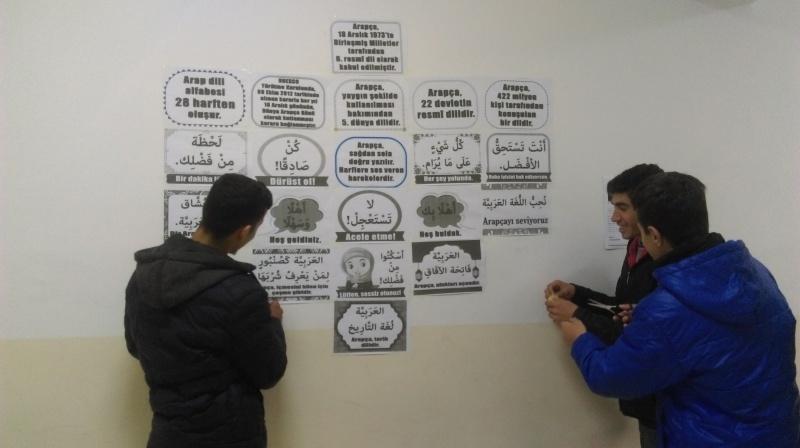 Arapça,
18 Aralık 1973'te
Birleşmiş Milletler
tarafından
6. resmi dil olarak
kabul edilmiştir.
Arap dili
alfabesi
28 harften
oluşur.
UNESCO
Yürütme Kurulunda,
08 Ekim 2012 tarihinde
alınan kararla her yıl
18 Aralık gününün,
Dünya Arapça Günü
olarak kutlanması
kararı bağlanmıştır.
Arapça,
yaygın şekilde
kullanılması
bakımından
5. dünya dilidir.
Arapça,
22 devletin
resmi dilidir.
Arapça,
422 milyon
kişi tarafından
konuşulan
bir dildir.
لَحْظَة
مِنْ فَضْلِك.
Bir dakika
كُنْ
صَادِقًا!
Dürüst ol!
Arapça,
sağdan sola
doğru yazılır.
Harflere ses veren
harekelerdir.
كُلُّ شَيْءٍ
عَلَى مَا يُرَام.
Her şey yolunda.
أَنْتَ تَسْتَحِقُّ
الأَفْضَل.
أَهْلًا
وَسَهْلًا
Hoş geldiniz.
لا
تَسْتَعْجِلْ!
Acele etme!
أَهْلًا بِك
Hoş bulduk.
نُحِبُّ اللُّغَةَ العَرَبِيَّةَ
Arapçayı seviyoruz
العَرَبِيَّة كَصُنْبُورٍ
لِمَنْ يَعْرِفُ شُرْبَهَا
Arapça, içmesini bilen için
çeşme gibidir.
أُسْكُتُوا
مِنْ
فَضْلِك!
Lütfen, sessiz olunuz!
العَرَبِيَّة
فَاتِحَة الآفَاق
Arapça, ufukları açandır.
العَرَبِيَّة
لُغَة التَّارِيخ
Arapça, tarih
dilidir.